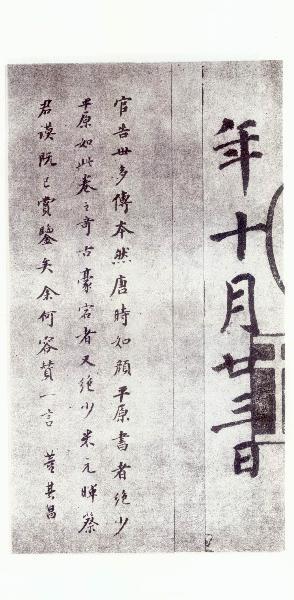 年十月廿三日
官告世多傳本然唐時如顏平原書者絕少
平原如此卷之奇古豪宕者又絕少米元暉蔡
君謨既已賞鑒矣余何容贊一言 董其昌